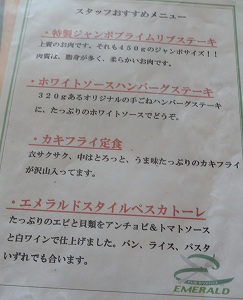 スタッフおすすめメニュー
・特製ジャンボプライムリブステーキ
上質のお肉です。それも450gのジャンボサイズ!!
肉質は、脂身が多く、柔らかいお肉です。
・ホワイトソースハンバーグステーキ
320gあるオリジナルの手ごねハンバーグステーキ
に、たっぷりのホワイトソースでどうぞ。
・カキフライ定食
衣サクサク、中はとろっと、うま味たっぷりのカキフライ
が沢山入ってます。
・エメラルドスタイルペスカトーレ
たっぷりのエビと貝類をアンチョビ&トマトソース
と白ワインで仕上げました。パン、ライス、パスタ
いずれでも合います。
EMERALD